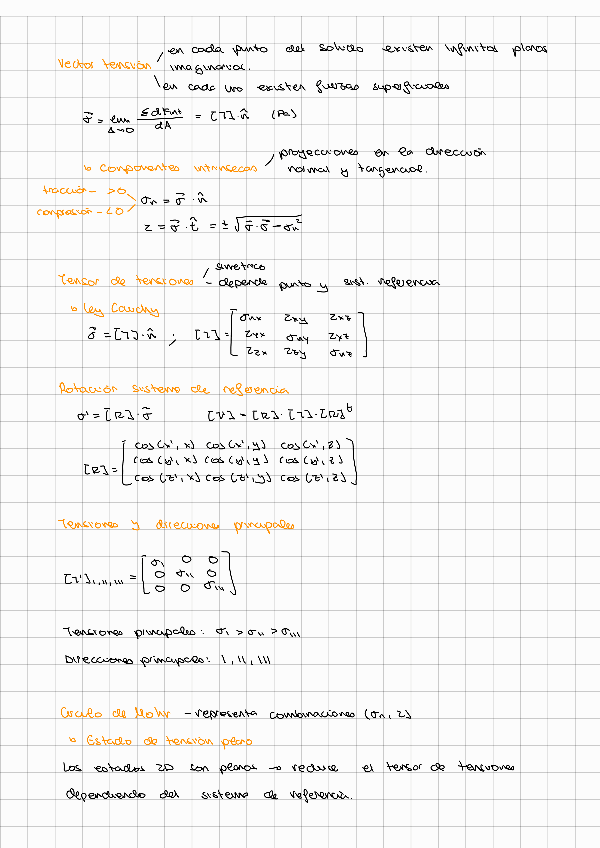 en cada punto del solido existen infinitos planos
Vector tensión imaginarios.
en cada uno existen fuerzas superficiales
σ⃗ = lim ΣdFint / dA = [T]·n̂ (Pa)
Δ→0
↳ Componentes intrínsecas proyecciones en la dirección
normal y tangencial.
tracción → >0
compresión → <0
σn = σ⃗ · n̂
τ = σ⃗ · t̂ = ± √(σ⃗ · σ⃗ - σn²)
Tensor de tensiones simétrico
- depende punto y sist. referencia
↳ Ley Cauchy
σ⃗ = [T]·n̂ ; [T] = [ σnx τxy τxz
τyx σny τxz
τzx τzy σnz ]
Rotación sistema de referencia
σ' = [R]·σ⃗ [T'] = [R]·[T]·[R]ᵗ
[R] = [ cos(x', x) cos(x', y) cos(x', z)
cos(y', x) cos(y', y) cos(y', z)
cos(z', x) cos(z', y) cos(z', z) ]
Tensiones y direcciones principales
[T']I,II,III = [ σI 0 0
0 σII 0
0 0 σIII ]
Tensiones principales: σI > σII > σIII
Direcciones principales: I, II, III
Círculo de Mohr - representa combinaciones (σn, τ)
↳ Estado de tensión plano
Los estados 2D son planos → reduce el tensor de tensiones
dependiendo del sistema de referencia.